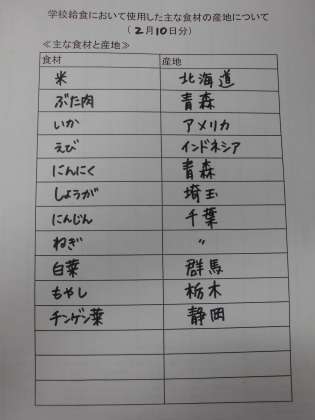 学校給食において使用した主な食材の産地について
(2月10日分)
≪主な食材と産地≫
食材 産地
米 北海道
ぶた肉 青森
いか アメリカ
えび インドネシア
にんにく 青森
しょうが 埼玉
にんじん 千葉
ねぎ 〃
白菜 群馬
もやし 栃木
チンゲン菜 静岡